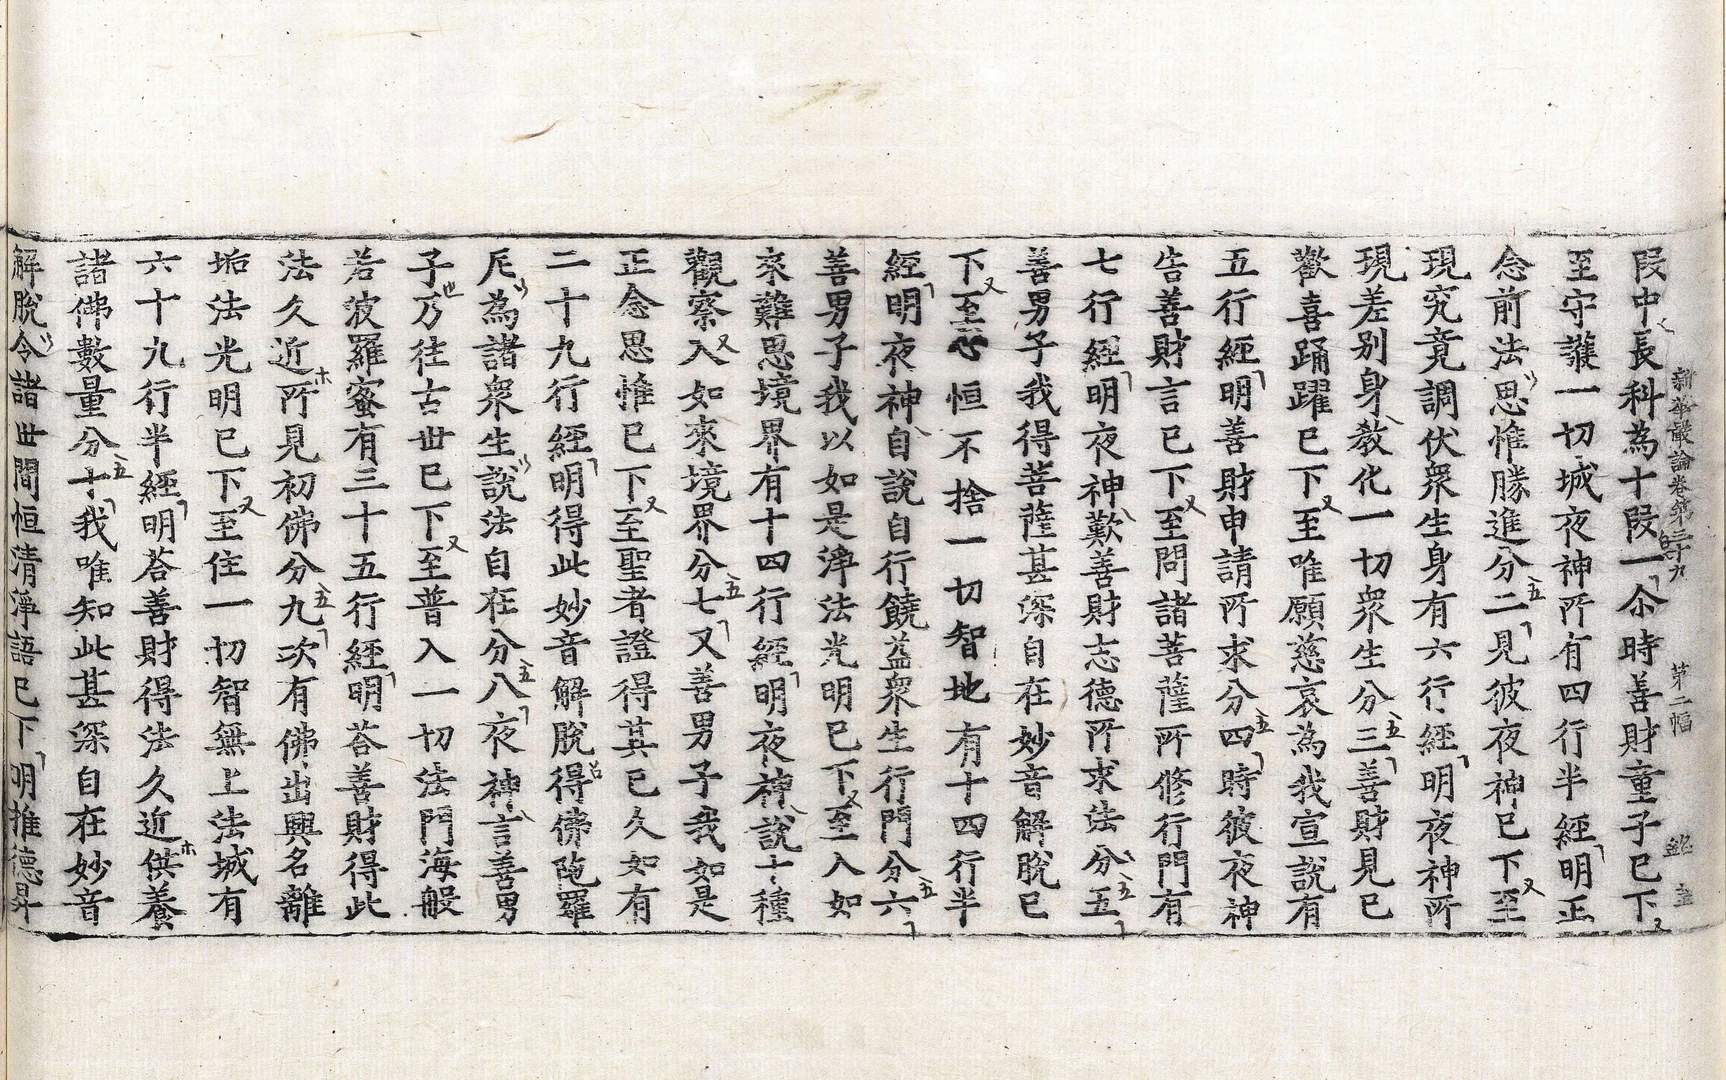 段中長科為十段一尒時善財童子已下
新華嚴論卷第三十九 第二幅
至守護一切城夜神所有四行半經明正
念前法思惟勝進分二見彼夜神已下至
現究竟調伏衆生身有六行經明夜神所
現差別身教化一切衆生分三善財見已
歡喜踊躍已下至唯願慈哀為我宣說有
五行經明善財申請所求分四時彼夜神
告善財言已下至問諸菩薩所修行門有
七行經明夜神歎善財志德所求法分五
善男子我得菩薩甚深自在妙音解脫已
下至恒不捨一切智地有十四行半
經明夜神自說自行饒益衆生行門分六
善男子我以如是淨法光明已下至入如
來難思境界有十四行經明夜神說十種
觀察入如來境界分七又善男子我如是
正念思惟已下至聖者證得其已久如有
二十九行經明得此妙音解脫得佛陁羅
尼為諸衆生說法自在分八夜神言善男
子乃往古世已下至普入一切法門海般
若波羅蜜有三十五行經明荅善財得此
法久近所見初佛分九次有佛出興名離
垢法光明已下至住一切智無上法城有
六十九行半經明荅善財得法久近供養
諸佛數量分十我唯知此甚深自在妙音
解脫令諸世間恒清淨語已下明推德昇